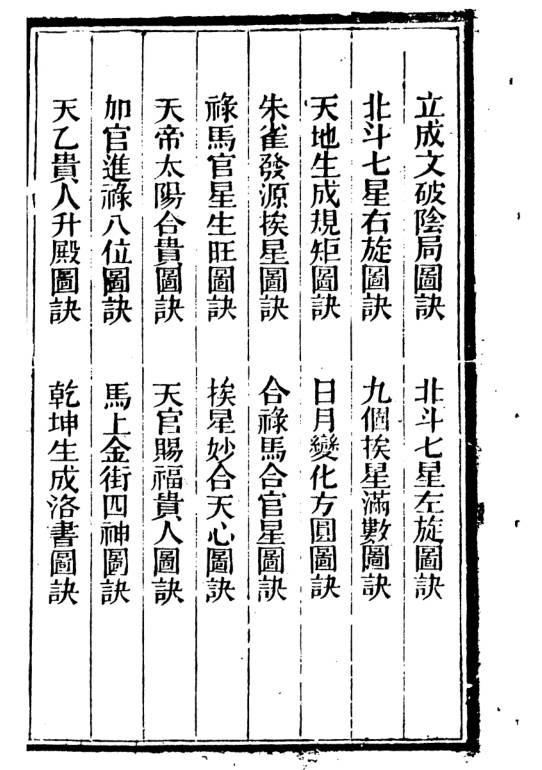 立成文破陰局圖訣　北斗七星左旋圖訣
北斗七星右旋圖訣　九個挨星滿數圖訣
天地生成規矩圖訣　日月變化方圓圖訣
朱雀發源挨星圖訣　合祿馬合官星圖訣
祿馬官星生旺圖訣　挨星妙合天心圖訣
天帝太陽合貴圖訣　天官賜福貴人圖訣
加官進祿八位圖訣　馬上金街四神圖訣
天乙貴人升殿圖訣　乾坤生成洛書圖訣